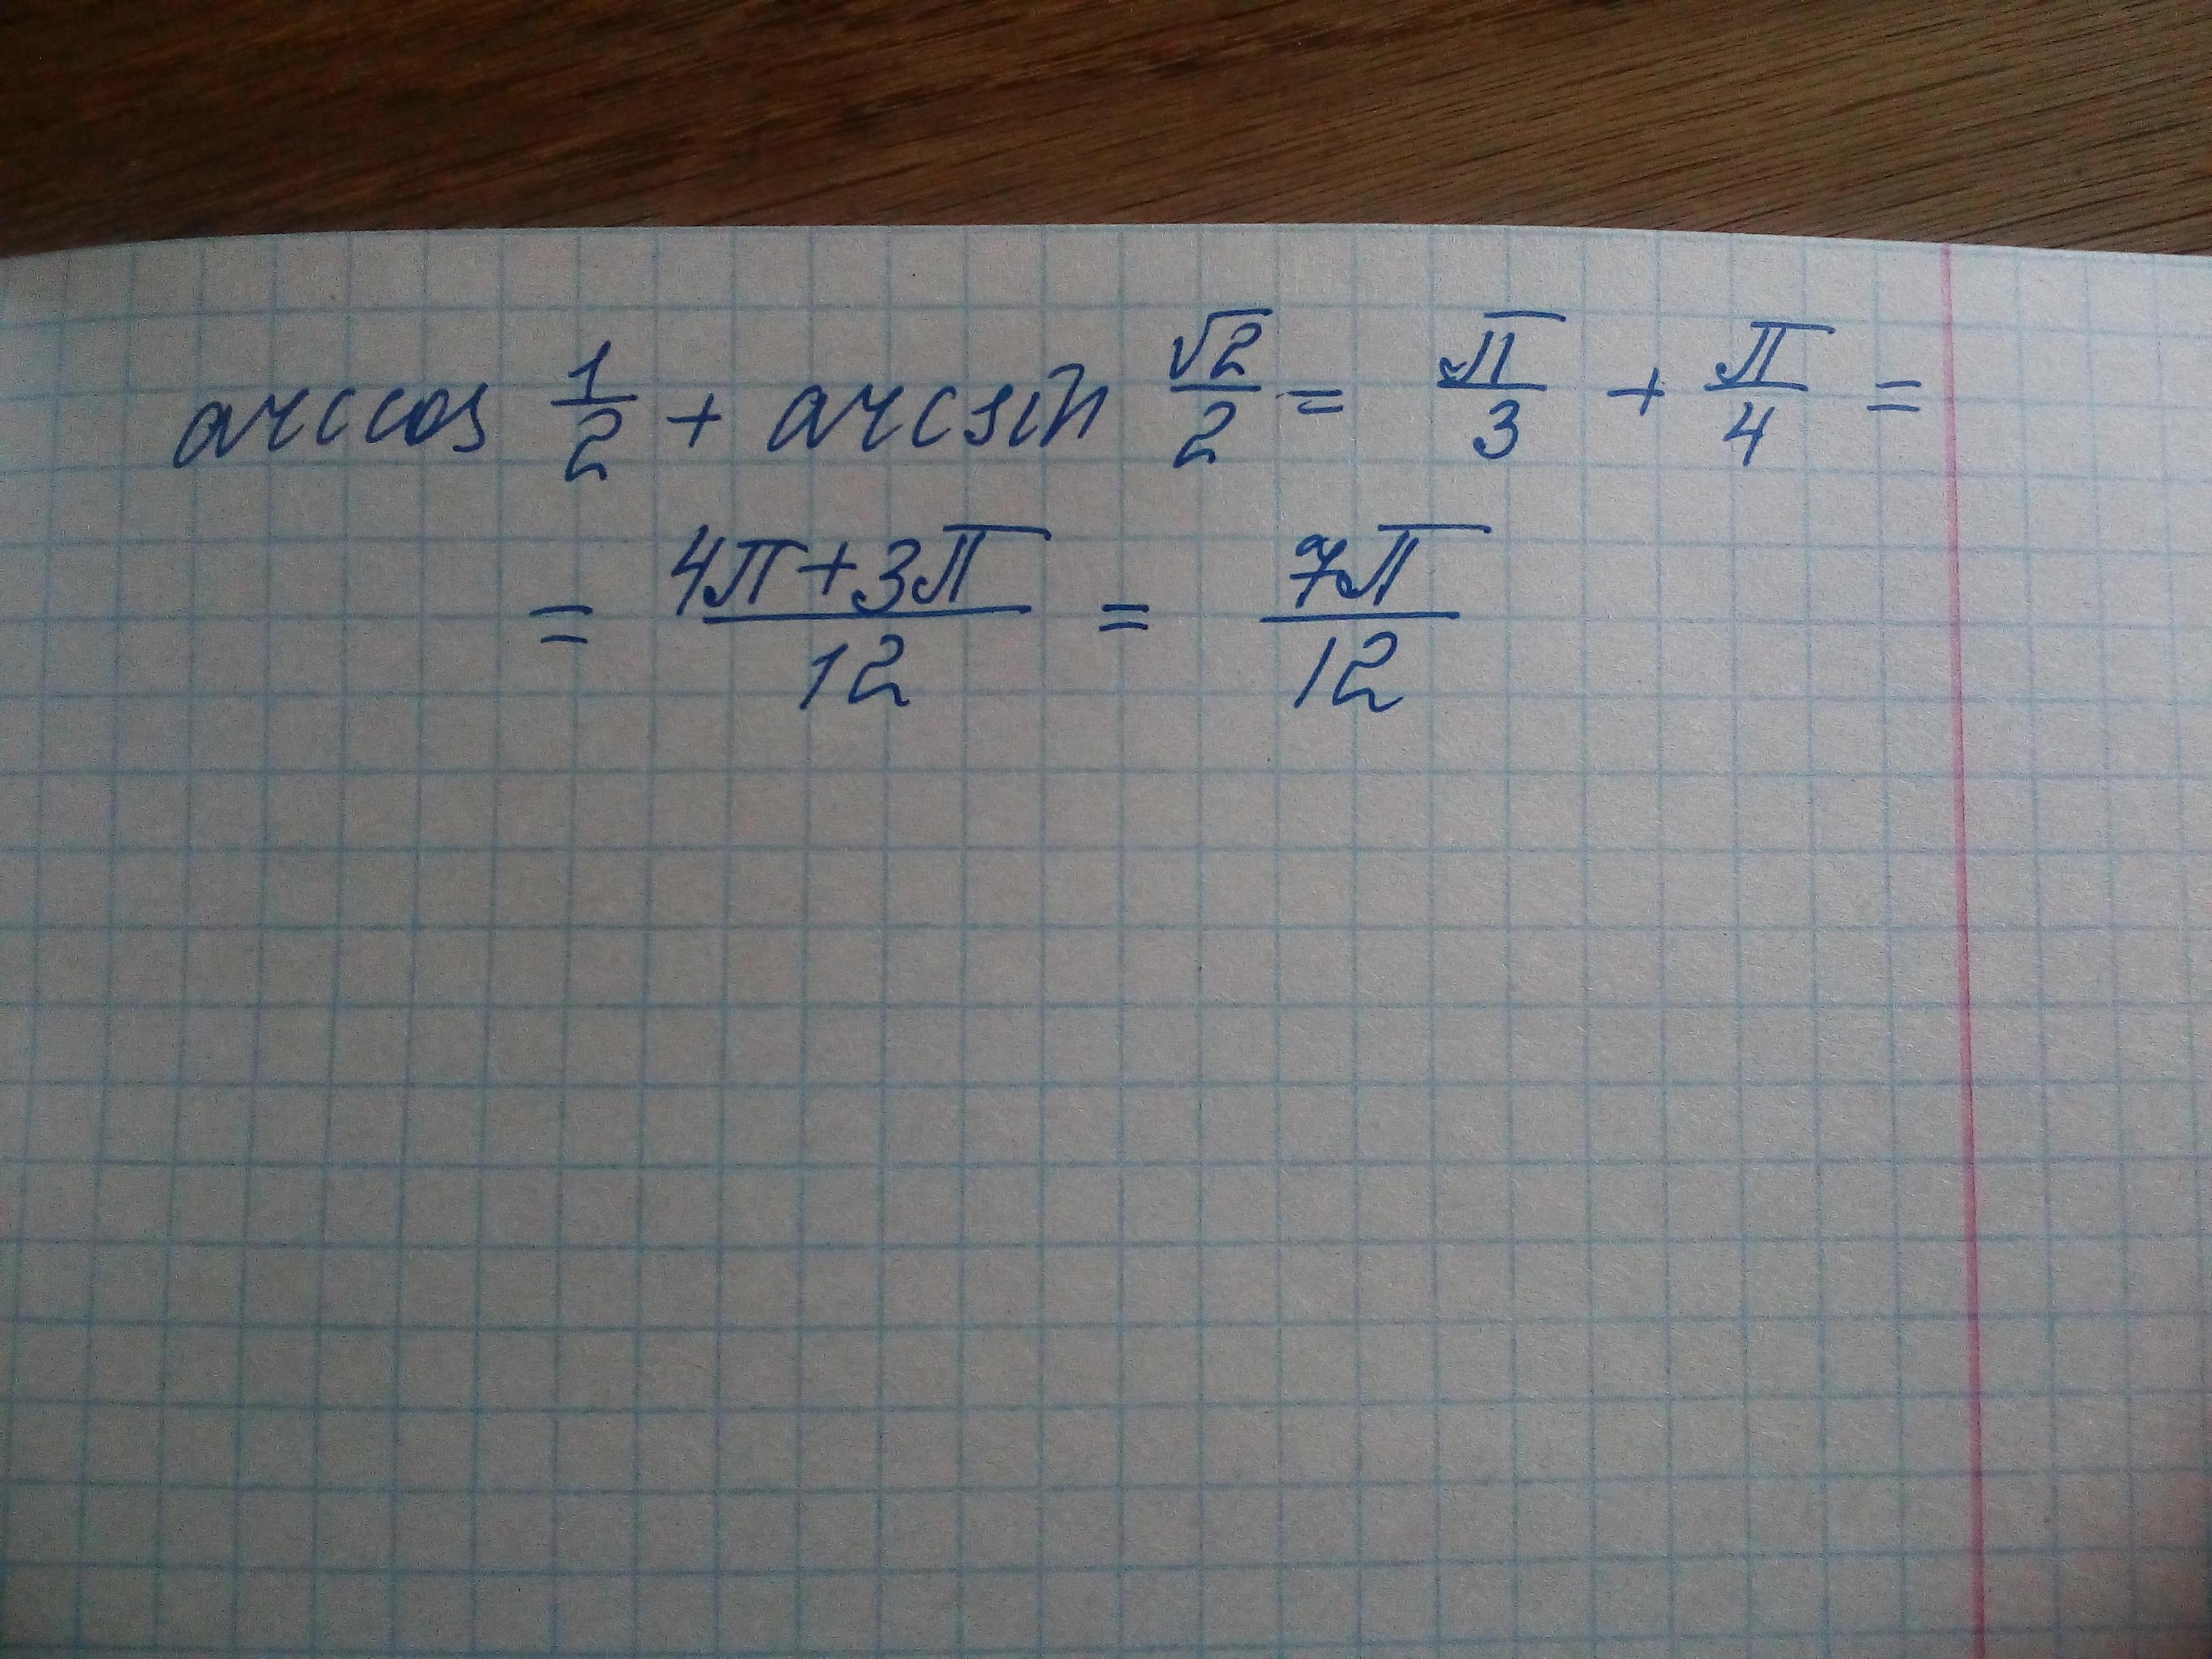 arccos 1/2 + arcsin √2/2 = π/3 + π/4 =
= 4π+3π/12 = 7π/12